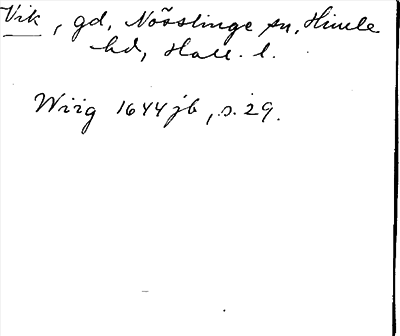 Vik, gd, Nösslinge sn, Himle
hd, Hall. l.
Wiig 1644 jb, s. 29.